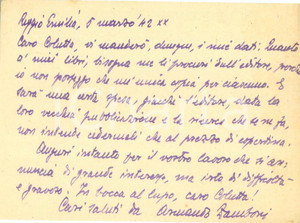 Reggio Emilia, 5 marzo 42 XX
Caro Coletta, vi manderò, dunque, i miei dati. Quanto
a' miei libri, bisogna me li procuri dall'editore, perché
io non posseggo che un'unica copia per ciascuno. E
sarà una certa spesa, giacché l'editore, data la
loro vecchia pubblicazione e la ricerca che se ne fa,
non intende cedermeli che al prezzo di copertina.
Auguri intanto per il vostro lavoro che si an-
nuncia di grande interesse, ma irto di difficoltà
e gravoso. In bocca al lupo, caro Coletta!
Cari saluti da Armando Zamboni